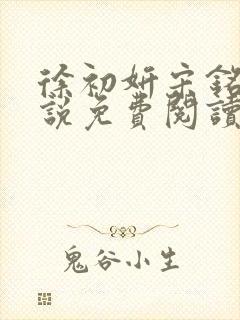 徐初妍宋銘
說免費閱讀
鬼谷小生